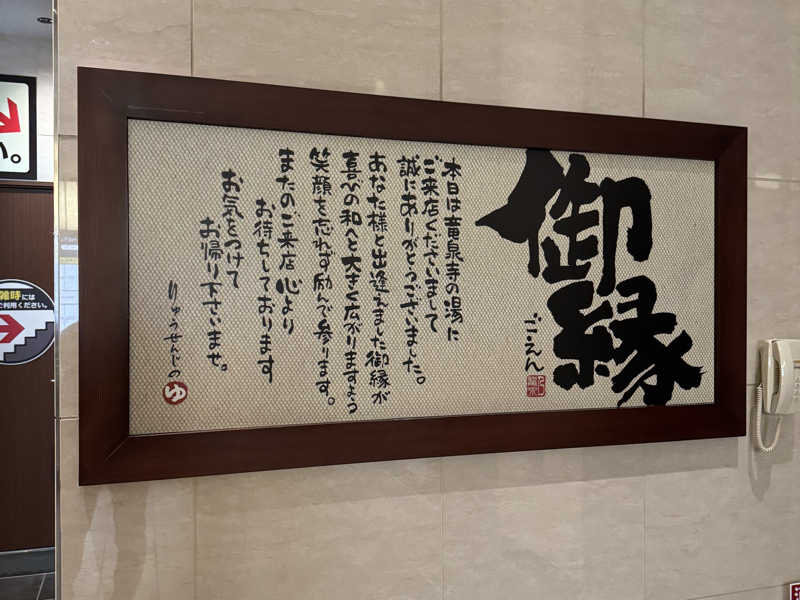 御縁
ごえん
本日は竜泉寺の湯に
ご来店くださいまして
誠にありがとうございました。
あなた様と出逢えました御縁が
喜びの和へと大きく広がりますよう
笑顔を忘れず励んで参ります。
またのご来店 心より
お待ちしております
お気をつけて
お帰り下さいませ。
りゅうせんじの
ゆ
い。
雑時には
ご利用ください。